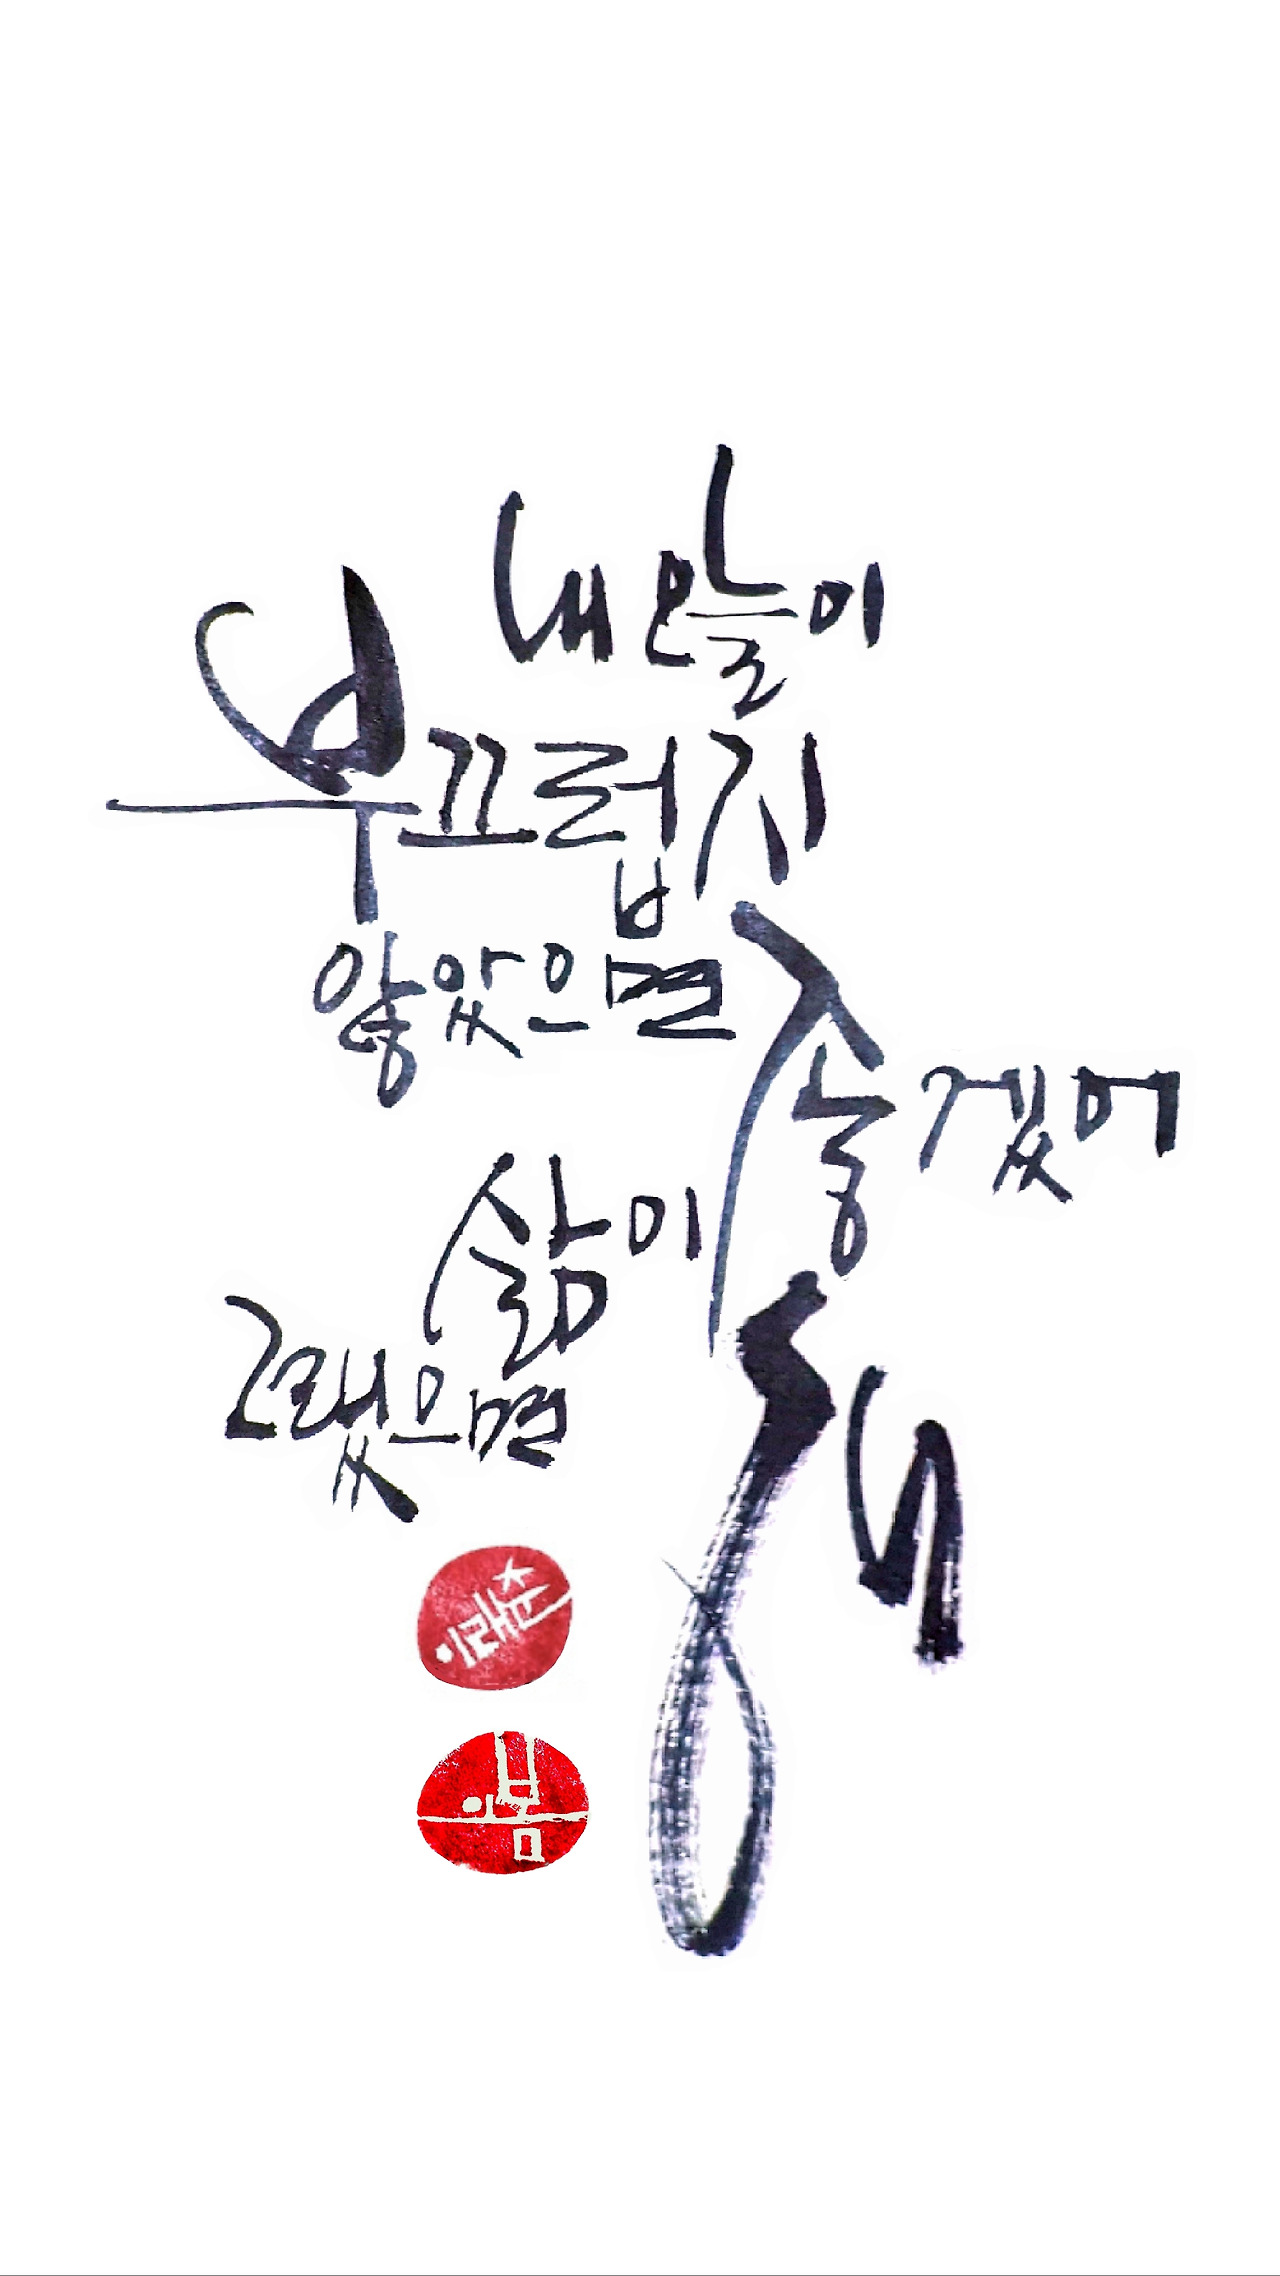 내 오늘이
부끄럽지
않았으면 좋겠어
삶이
그랬으면 해
이래춘
이봄